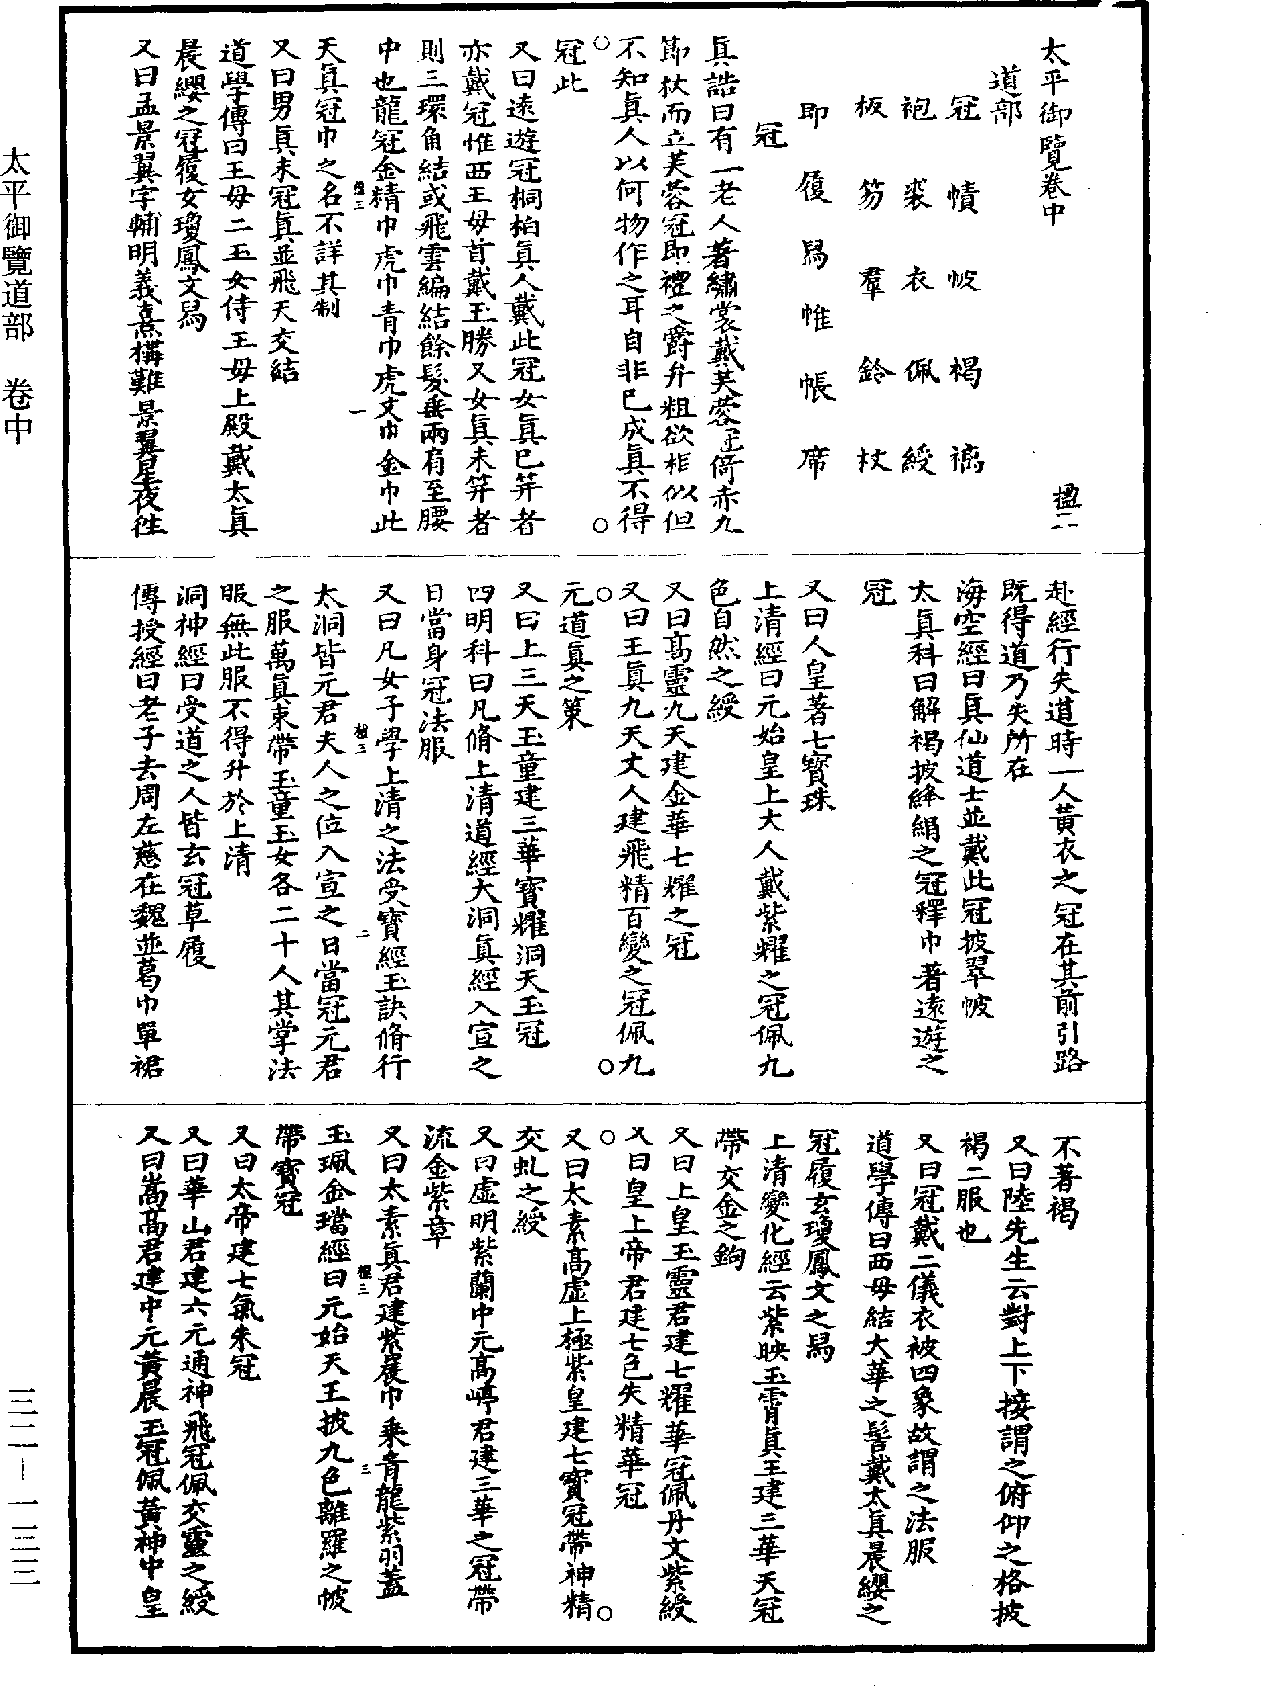 太平御覽卷中　楹二
道部
冠幘帔褐襦
袍裘衣佩綬
板笏羣鈴杖
即履舄帷帳席
冠
真誥曰有一老人著繡裳戴芙蓉冠倚赤九
節杖而立芙蓉冠即禮之爵弁粗欲相似但
不知真人以何物作之耳自非已成真不得
冠此
又曰遠遊冠桐柏真人戴此冠女真已笄者
亦戴冠惟西王母首戴玉勝又女真未笄者
則三環角結或飛雲編結餘髮垂兩肩至腰
中也龍冠金精巾虎巾青巾虎文巾金巾此
天真冠巾之名不詳其制
又曰男真未冠真並飛天交結
道學傳曰王母二玉女侍王母上殿戴太真
晨纓之冠履女瓊鳳文舄
又曰孟景翼字輔明義熹構難景翼星夜徃
赴經行失道時一人黃衣之冠在其前引路
既得道乃失所在
海空經曰真仙道士並戴此冠披翠帔
太真科曰解褐披絳絹之冠釋巾著遠遊之
冠
又曰人皇著七寶珠
上清經曰元始皇上大人戴紫耀之冠佩九
色自然之綬
又曰高靈九天建金華七耀之冠
又曰王真九天丈人建飛精百變之冠佩九
元道真之策
又曰上三天玉童建三華寶耀洞天玉冠
四明科曰凡脩上清道經大洞真經入宣之
日當身冠法服
又曰凡女子學上清之法受寶經玉訣脩行
太洞皆元君夫人之位入宣之日當冠元君
之服萬真束帶玉童玉女各二十人其掌法
服無此服不得升於上清
洞神經曰受道之人皆玄冠草履
傳授經曰老子去周左慈在魏並葛巾單裙
不著褐
又曰陸先生云對上下接謂之俯仰之格披
褐二服也
又曰冠戴二儀衣被四象故謂之法服
道學傳曰西母結大華之髻戴太真晨纓之
冠履玄瓊鳳文之舄
上清變化經云紫映玉霄真王建三華天冠
帶交金之鉤
又曰上皇玉靈君建七耀華冠佩丹文紫綬
又曰皇上帝君建七色失精華冠
又曰太素高虛上極紫皇建七寶冠帶神精
交虬之綬
又曰虛明紫蘭中元高崿君建三華之冠帶
流金紫章
又曰太素真君建紫晨巾乘青龍紫羽蓋
玉珮金璫經曰元始天王披九色離羅之帔
帶寶冠
又曰太帝建七氣朱冠
又曰華山君建六元通神飛冠佩交靈之綬
又曰嵩高君建中元黃晨玉冠佩黃神中皇
太平御覽道部　卷中
三二—一三三